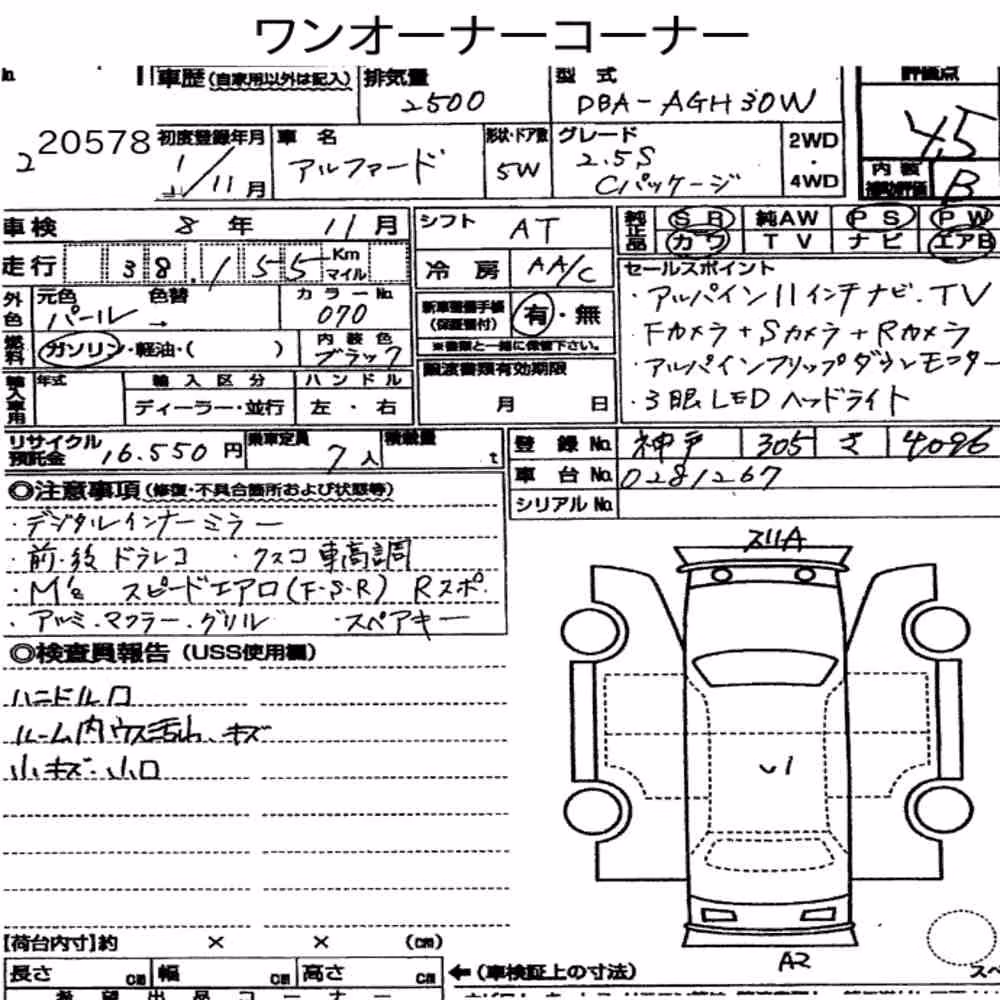 ワンオーナーコーナー
車歴(自家用以外は記入) 排気量 2500 型式 DBA-AGH30W 評価点 4.5
20578 初度登録年月 11月 車名 アルファード 形状・ドア数 5W グレード 2.5S Cパッケージ 2WD・4WD 内装補助評価 B
車検 8年 11月 シフト AT 純正品 SR 純AW PS PW
走行 38,155 Km マイル 冷房 AA/C カワ TV ナビ エアB
セールスポイント
外色 元色 パール 色替 → カラーNo. 070 新車整備手帳(保証書付) 有・無
・アルパイン11インチナビ.TV
・Fカメラ+Sカメラ+Rカメラ
燃料 ガソリン・軽油・( ) 内装色 ブラック ※書類と一緒に保管下さい。
・アルパインフリップダウンモニター
・3眼LEDヘッドライト
輸入車用 年式 輸入区分 ハンドル 譲渡書類有効期限
ディーラー・並行 左・右 月 日
リサイクル預託金 16.550円 乗車定員 7人 積載量 t 登録No. 神戸 305 さ 4096
車台No. 0281267
シリアルNo.
◎注意事項(修復・不具合箇所および状態等)
・デジタルインナーミラー
・前・後ドラレコ ・クスコ車高調
・M's スピードエアロ(F・S・R) Rスポ.
・アルミ.マフラー.グリル ・スペアキー
◎検査員報告(USS使用欄)
ハンドルロ
ルーム内ウス汚れ、キズ
小キズ・小ロ
スリA
U1
A2
【荷台内寸】約 × × (cm)
長さ cm 幅 cm 高さ cm ←(車検証上の寸法)
希望出品コーナー